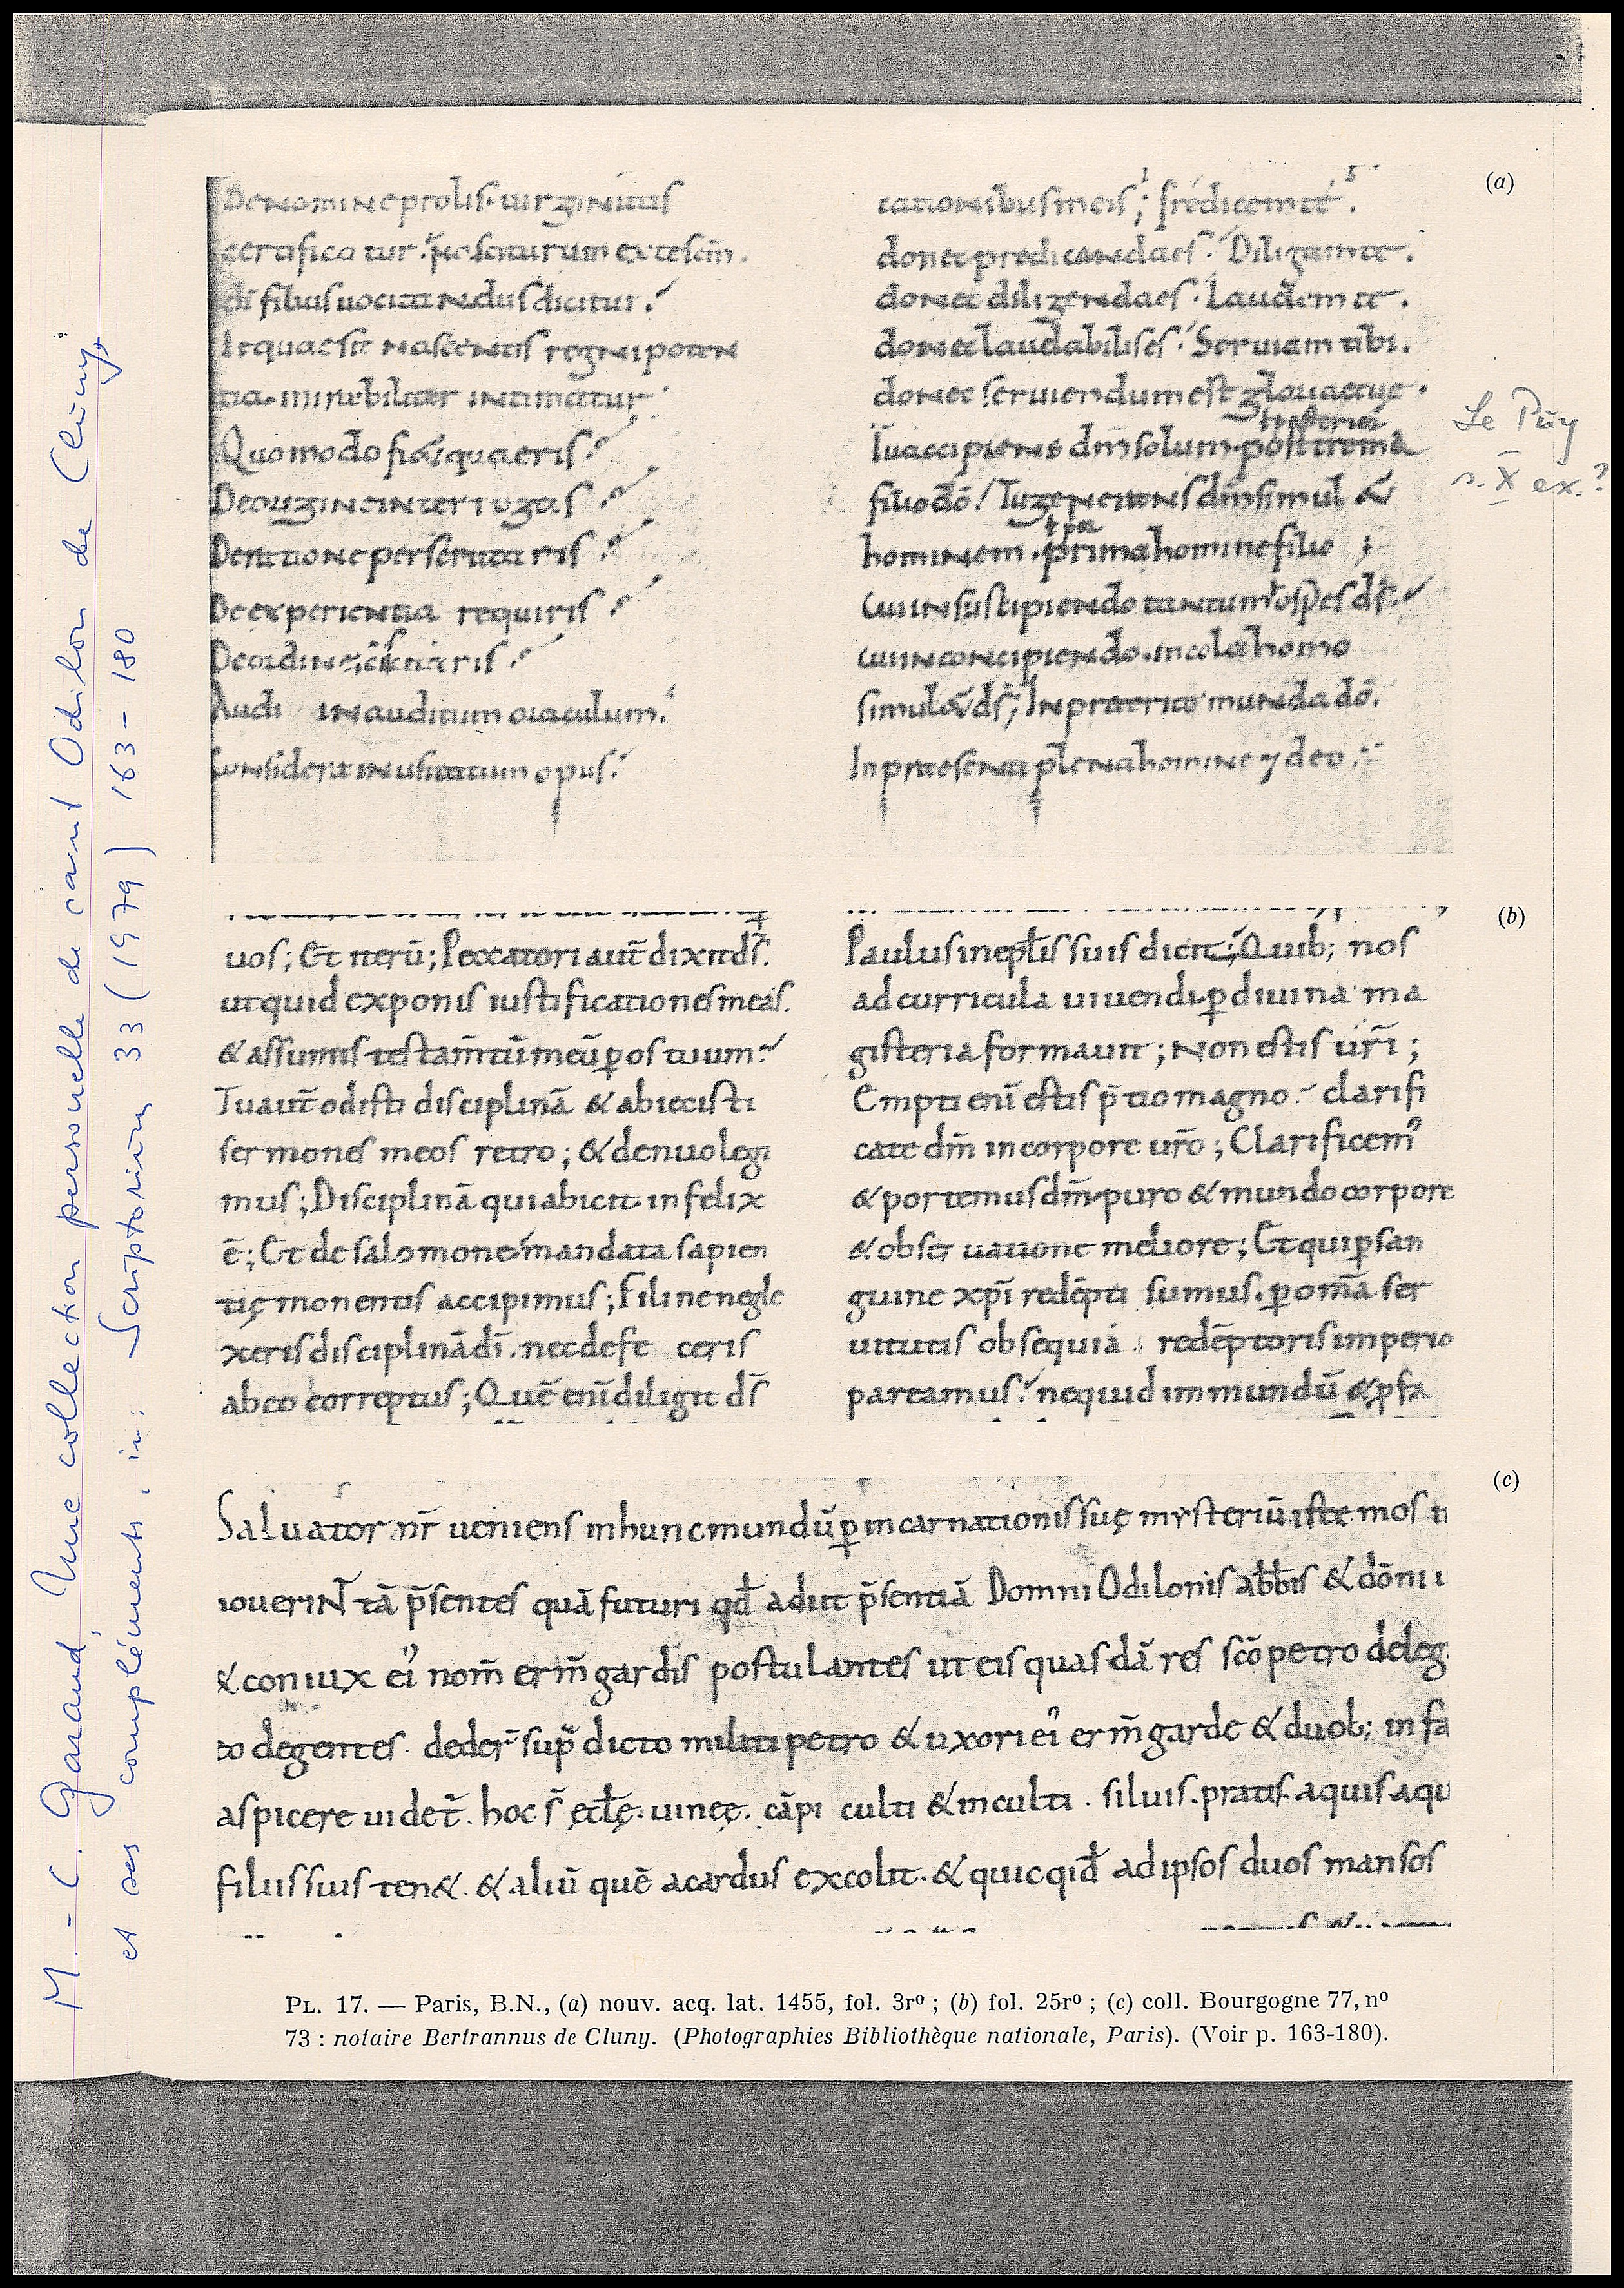 (a)
De nomine prolis · uirginitas
certificatur
di filius uocitandus dicitur
It quae sit nascentis regni poten
tia mirabiliter intimatur
Quomodo fiat quaeris
De origine interrogas
De ratione perscrutaris
De experientia requiris
De ordine
Audi inauditum oraculum
Considera inusitatum opus
cationibus meis ; Predicem te .
donec predicandaes . Diligam te .
donec diligendaes . Laudem te .
donec laudabilises . Seruiam tibi .
donec seruiendum est
Tu accipiens dm̄ solum
filio dō Tu gener dm̄ simul &
hominem . prima homine filio
Cui in suscipiendo tantum ospes ds̄
cui in concipiendo . incola homo
simul & ds̄ ; In praeterito munda dō .
In praesenti plena homine 7 deo
Le Puy
s. X ex. ?
(b)
uos ; Et iterū ; Peccatori aut̄ dixit ds̄ .
ut quid exponis iustificationes meas .
& assumis testam̄tū meū p os tuum
Tu aut̄ odisti disciplinā & abiecisti
sermones meos retro ; & denuo legi
mus ; Disciplinā qui abicit infelix
ē ; Et de salomone mandata sapien
tię monentis accipimus ; Fili ne negle
xeris disciplinā dī . nec defe ceris
ab eo correptus ; Quē enī diligit ds̄
Paulus in epl̄is suis dicit ; Quib; nos
ad curricula uiuendi p diuina ma
gisteria formauit ; Non estis ur̄i ;
Empti enī estis p̄tio magno clarifi
cate dm̄ in corpore ur̄o ; Clarificem
& portemus dm̄ puro & mundo corpore
& obseruatione meliore ; Et qui p san
guine xpī redēpti sumus . p om̄a ser
uitutis obsequia redēptoris imperio
pareamus nequid immundū &
(c)
Saluator nr̄ ueniens in hunc mundū p incarnationis suę mysteriū
nouerint tā p̄sentes quā futuri qd̄ adiit p̄sentiā Domni Odilonis abb̄is & dōni
& coniux ei nom̄ erm̄gardis postulantes ut eis quasdā res scō petro deleg
to degentes . deder̄ sup̄dicto militi petro & uxori ei erm̄garde & duob; in fa
aspicere uidet̄ . hoc s̄ ęcl̄ę . uineę . cāpi culti & inculti . siluis . pratis . aquis . aqu
filius suus ten& . & aliū quē acardus excolit . & quicqid̄ ad ipsos duos mansos
M.-C. Garand, Une collection personnelle de saint Odilon de Cluny
et ses compléments, in: Scriptorium 33 (1979) 163-180
PL. 17. — Paris, B.N., (a) nouv. acq. lat. 1455, fol. 3rº ; (b) fol. 25rº ; (c) coll. Bourgogne 77, nº
73 : notaire Bertrannus de Cluny. (Photographies Bibliothèque nationale, Paris). (Voir p. 163-180).